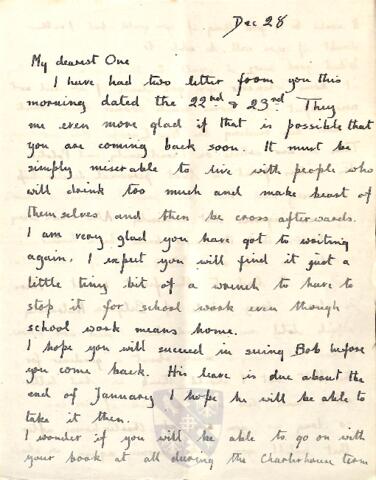 Dec 28
My dearest One
I have had two letter from you this
morning dated the 22nd & 23rd They
me even more glad if that is possible that
you are coming back soon. It must be
simply miserable to live with people who
will drink too much and make beast of
themselves and then be cross afterwards.
I am very glad you have got to writing
again, I expect you will find it just a
little tiny bit of a wrench to have to
stop it for school work even though
school work means home.
I hope you will succeed in seeing Bob before
you come back. His leave is due about the
end of January I hope he will be able to
take it then.
I wonder if you will be able to go on with
your book at all during the Charterhouse term